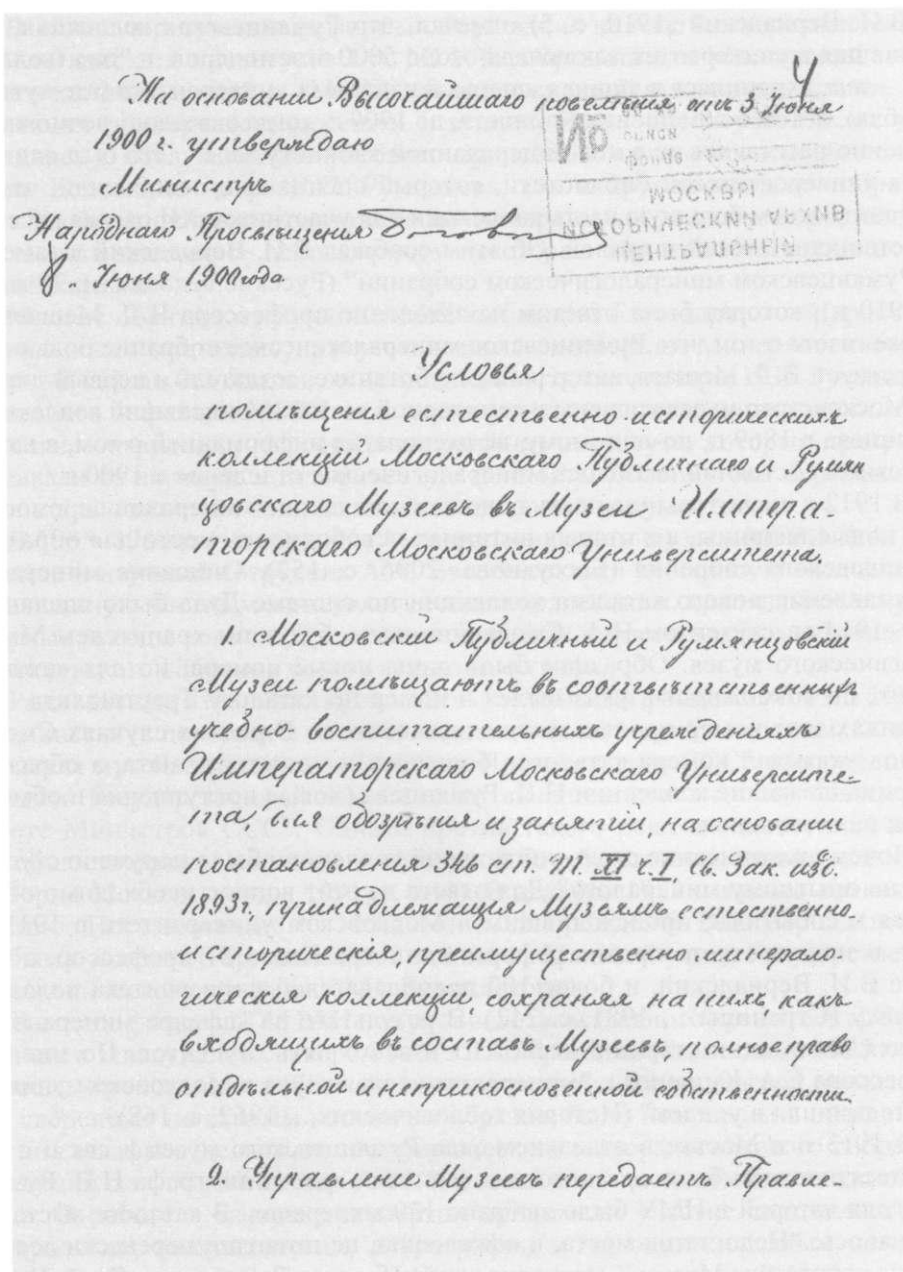 4
На основании Высочайшаго повелѣнія отъ 3 Июня
1900 г. утверждаю
Министръ
Народнаго Просвѣщенія
8. Июня 1900 года
МОСКВЫ
ИСТОРИЧЕСКИЙ АРХИВ
ЦЕНТРАЛЬНЫЙ
Условья
помѣщенія естественно-историческихъ
коллекцій Московскаго Публичнаго и Румян
цовскаго Музеевъ въ Музеи Импера-
торскаго Московскаго Университета.
1. Московскій Публичный и Румянцовскій
Музеи помѣщаютъ въ соотвѣтственныхъ
учебно-воспитательныхъ учрежденіяхъ
Императорскаго Московскаго Университе-
та, для обозрѣнія и занятій, на основании
постановленія 346 ст. Т. XI ч. I, Св. Зак. изд.
1893 г., принадлежащія Музеямъ естественно-
историческія, преимущественно минерало-
гическія коллекціи, сохраняя на нихъ, какъ
входящихъ въ составъ Музеевъ, полное право
отдѣльной и неприкосновенной собственности.
2. Управленіе Музеевъ передаетъ Правле-